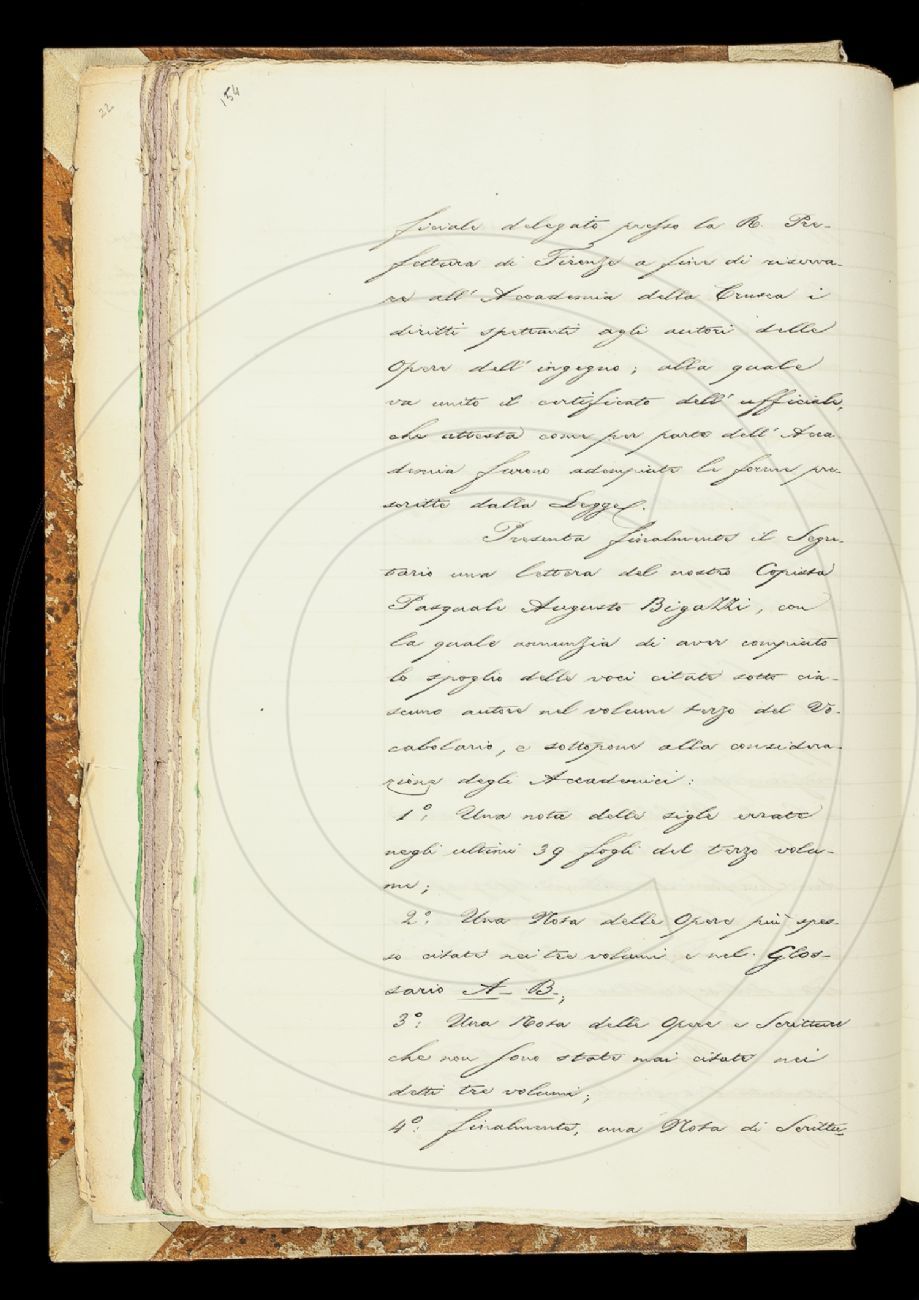 22
154
ficiale delegato presso la R. Pre-
fettura di Firenze a fine di riserva-
re all' Accademia della Crusca i
diritti spettanti agli autori delle
Opere dell' ingegno; alla quale
va unito il certificato dell' ufficiale,
che attesta come per parte dell' Acca-
demia furono adempiute le forme pre-
scritte dalla Legge.
Presenta finalmente il Segre-
tario una lettera del nostro Copista
Pasquale Augusto Bigazzi, con
la quale annunzia di aver compiuto
lo spoglio delle voci citate sotto cia-
scuno autore nel volume terzo del Vo-
cabolario, e sottopone alla considera-
zione degli Accademici:
1º: Una nota delle sigle errate
negli ultimi 39 fogli del terzo volu-
me;
2º: Una Nota delle Opere più spes-
so citate nei tre volumi e nel Glos-
sario A - B.;
3º: Una Nota delle Opere e Scritture
che non sono state mai citate nei
detti tre volumi;
4º: finalmente, una Nota di Scrittu-